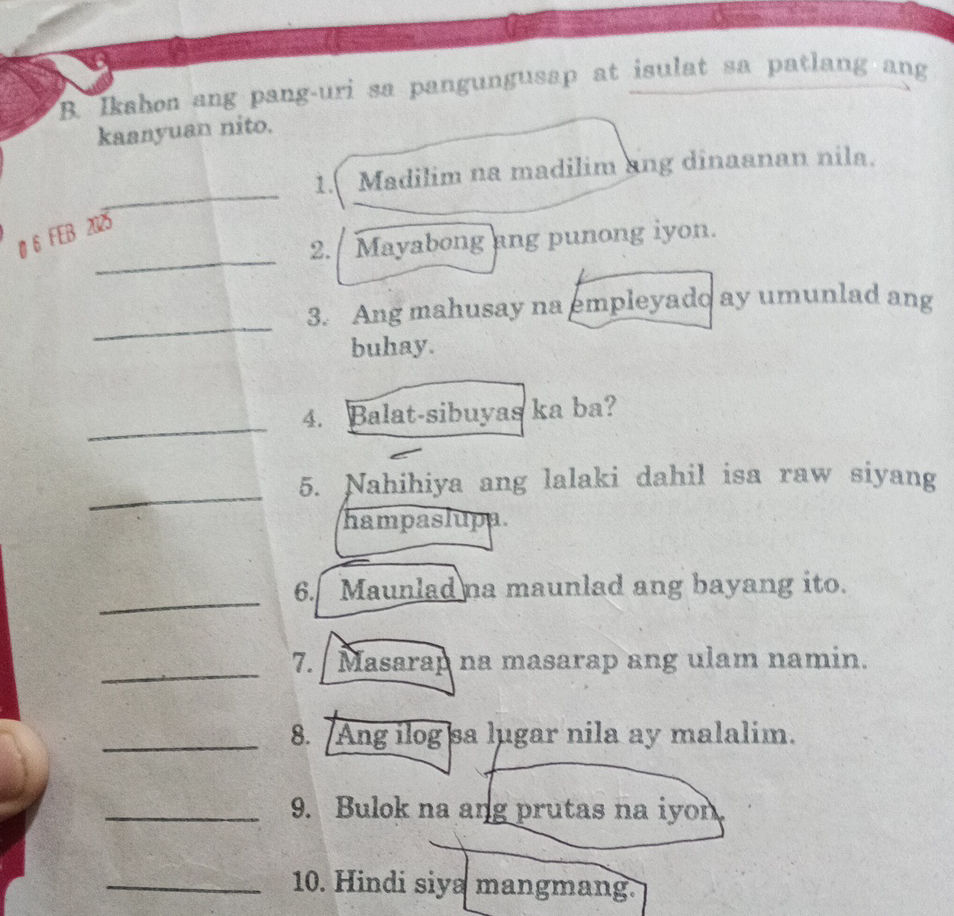 B. Ikahon ang pang-uri sa pangungusap at isulat sa patlang ang
kaanyuan nito.
1. Madilim na madilim ang dinaanan nila.
06 FEB 2025
2. Mayabong ang punong iyon.
3. Ang mahusay na empleyado ay umunlad ang
buhay.
4. Balat-sibuyas ka ba?
5. Nahihiya ang lalaki dahil isa raw siyang
hampaslupa.
6. Maunlad na maunlad ang bayang ito.
7. Masarap na masarap ang ulam namin.
8. Ang ilog sa lugar nila ay malalim.
9. Bulok na ang prutas na iyon.
10. Hindi siya mangmang.